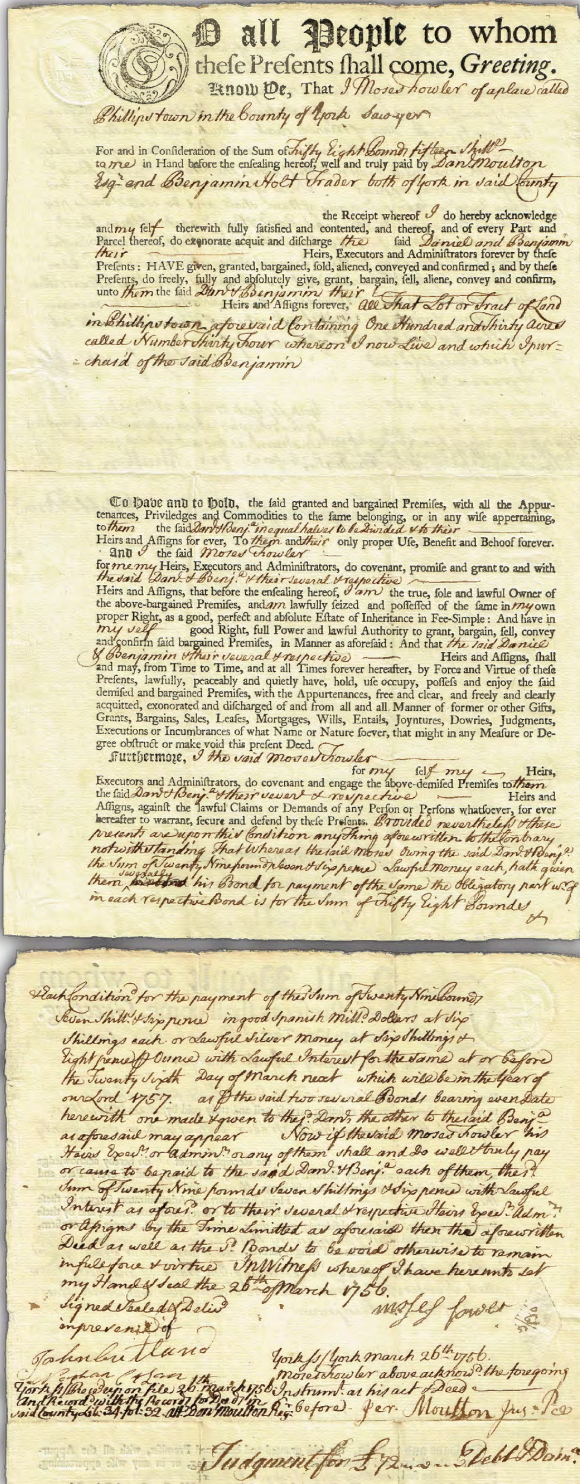 TO all People to whom
these Presents shall come, Greeting.
Know Ye, That I Moses Fowler of a place called
Phillipstown in the County of York Sawyer
For and in Consideration of the Sum of Fifty Eight Pounds fifteen Shill.gs
to me in Hand before the ensealing hereof, well and truly paid by Dan.l Moulton
Esq.r and Benjamin Holt Trader both of York in said County
the Receipt whereof I do hereby acknowledge
and my self therewith fully satisfied and contented, and thereof, and of every Part and
Parcel thereof, do exonerate acquit and discharge the said Daniel and Benjamin
their Heirs, Executors and Administrators forever by these
Presents: HAVE given, granted, bargained, sold, aliened, conveyed and confirmed; and by these
Presents, do freely, fully and absolutely give, grant, bargain, sell, aliene, convey and confirm,
unto them the said Dan.l & Benjamin their
Heirs and Assigns forever, All That Lot or Tract of Land
in Phillipstown aforesaid Containing One Hundred and Thirty Acres
called Number Thirty Four whereon I now Live and which I pur-
chas'd of the said Benjamin
To Have and to Hold, the said granted and bargained Premises, with all the Appur-
tenances, Priviledges and Commodities to the same belonging, or in any wise appertaining,
to them the said Dan.l & Benj.a in equal halves to be Divided & to their
Heirs and Assigns for ever, To them and their only proper Use, Benefit and Behoof forever.
And I the said Moses Fowler
for me my Heirs, Executors and Administrators, do covenant, promise and grant to and with
the said Dan.l & Benj.a & their several & respective
Heirs and Assigns, that before the ensealing hereof, I am the true, sole and lawful Owner of
the above-bargained Premises, and am lawfully seized and possessed of the same in my own
proper Right, as a good, perfect and absolute Estate of Inheritance in Fee-Simple: And have in
my self good Right, full Power and lawful Authority to grant, bargain, sell, convey
and confirm said bargained Premises, in Manner as aforesaid: And that the said Daniel
& Benjamin & their several & respective Heirs and Assigns, shall
and may, from Time to Time, and at all Times forever hereafter, by Force and Virtue of these
Presents, lawfully, peaceably and quietly have, hold, use occupy, possess and enjoy the said
demised and bargained Premises, with the Appurtenances, free and clear, and freely and clearly
acquitted, exonorated and discharged of and from all and all Manner of former or other Gifts,
Grants, Bargains, Sales, Leases, Mortgages, Wills, Entails, Joyntures, Dowries, Judgments,
Executions or Incumbrances of what Name or Nature soever, that might in any Measure or De-
gree obstruct or make void this present Deed.
Furthermore, I the said Moses Fowler
for my self my Heirs,
Executors and Administrators, do covenant and engage the above-demised Premises to them
the said Dan.l & Benj.a & their sever.l & respective Heirs and
Assigns, against the lawful Claims or Demands of any Person or Persons whatsoever, for ever
hereafter to warrant, secure and defend by these Presents. Provided nevertheless & these
presents are upon this Condition any thing aforewritten to the Contrary
notwithstanding That Whereas the said Moses Owing the said Dan.l & Benj.a
the Sum of Twenty Nine pounds Seven & Six pence Lawful Money each, hath given
them severally his Bond for payment of the Same the Obligatory part w.of
in each respective Bond is for the Sum of Fifty Eight Pounds
&
& Each Condition'd for the payment of the s.d Sum of Twenty Nine Pounds
Seven Shill.s & Six pence in good Spanish Mill'd Dollers at Six
Shillings each or Lawful Silver Money at Six Shillings &
Eight pence p Ounce with Lawful Interest for the Same at or before
the Twenty Sixth Day of March next which will be in the Year of
our Lord 1757. as p the said two several Bonds bearing even Date
herewith one made & given to the s.d Dan.l & the other to the said Benj.a
as aforesaid may appear Now if the said Moses Fowler his
Heirs Exec.rs or Admin.rs or any of them shall and Do well & truly pay
or cause to be paid to the said Dan.l & Benj.a each of them, the s.d
Sum of Twenty Nine pounds Seven Shillings & Six pence with Lawful
Interest as afores.d or to their several & respective Heirs Exec.rs Adm.rs
or Assigns by the Time Limitted as aforesaid then the aforewritten
Deed as well as the s.d Bonds to be void otherwise to remain
in full force & virtue In Witness whereof I have hereunto set
my Hand & Seal the 26th of March 1756.
Signed Sealed & Deliv'd
in presence of
Moses Fowler
John Cutland
York ss/ York March 26th 1756.
Moses Fowler above acknow'd the foregoing
Instrum.t as his act & Deed
before Jer. Moulton Jus. Pce
York ss/ Rec'd upon file 26th march 1756
And Record with the Records for Deeds in
said County Lib: 34. fol: 32. Att.r Dan Moulton Reg.r
Judgment for £72 Debt & Dam.a